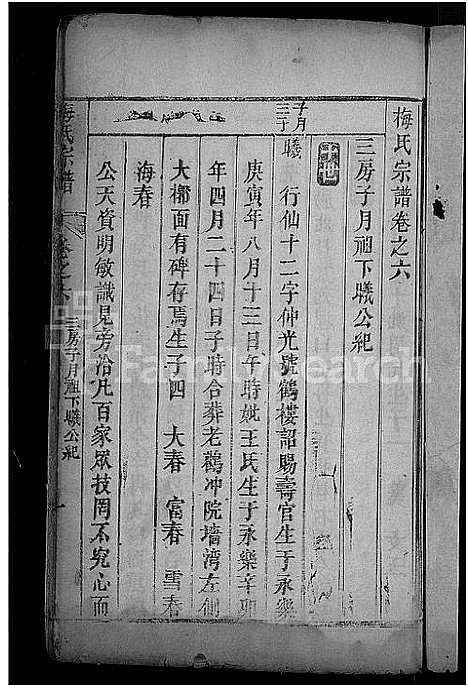 梅氏宗譜卷之六
三房子月祖下曦公紀
子月
三子
曦 行仙十二字仲光號鶴樓詔賜壽官生于永樂
庚寅年八月十三日午時妣王氏生于永樂辛卯
年四月二十四日子時合葬老鸛冲院墻湾左側
大槨面有碑存焉生子四 大春 富春 雪春
海春
公天資明敏識見旁洽凡百家眾技罔不究心而
梅氏宗譜 卷之六 三房子月祖下曦公紀 一
FamilySearch